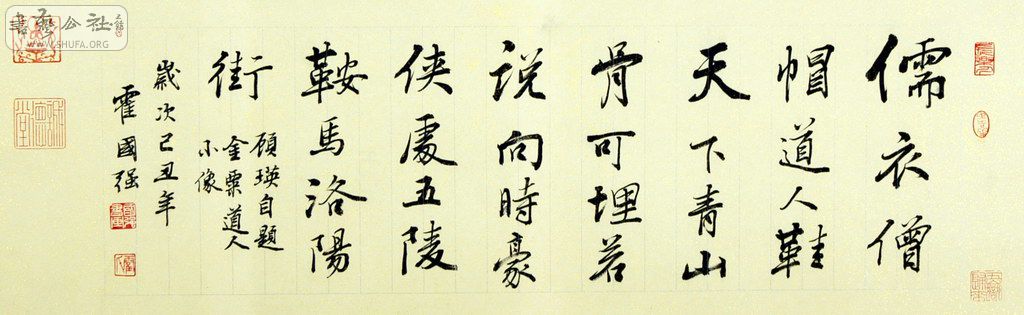 書藝公社
WWW.SHUFA.ORG
儒衣僧
帽道人鞋
天下青山
骨可埋若
说向時豪
侠處五陵
鞍馬洛陽
街
顾瑛自题
金粟道人
小像
歲次己丑年
霍國强